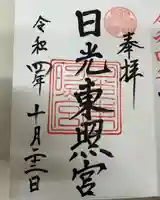 奉拝
日光東照宮
令和四年十月二十三日